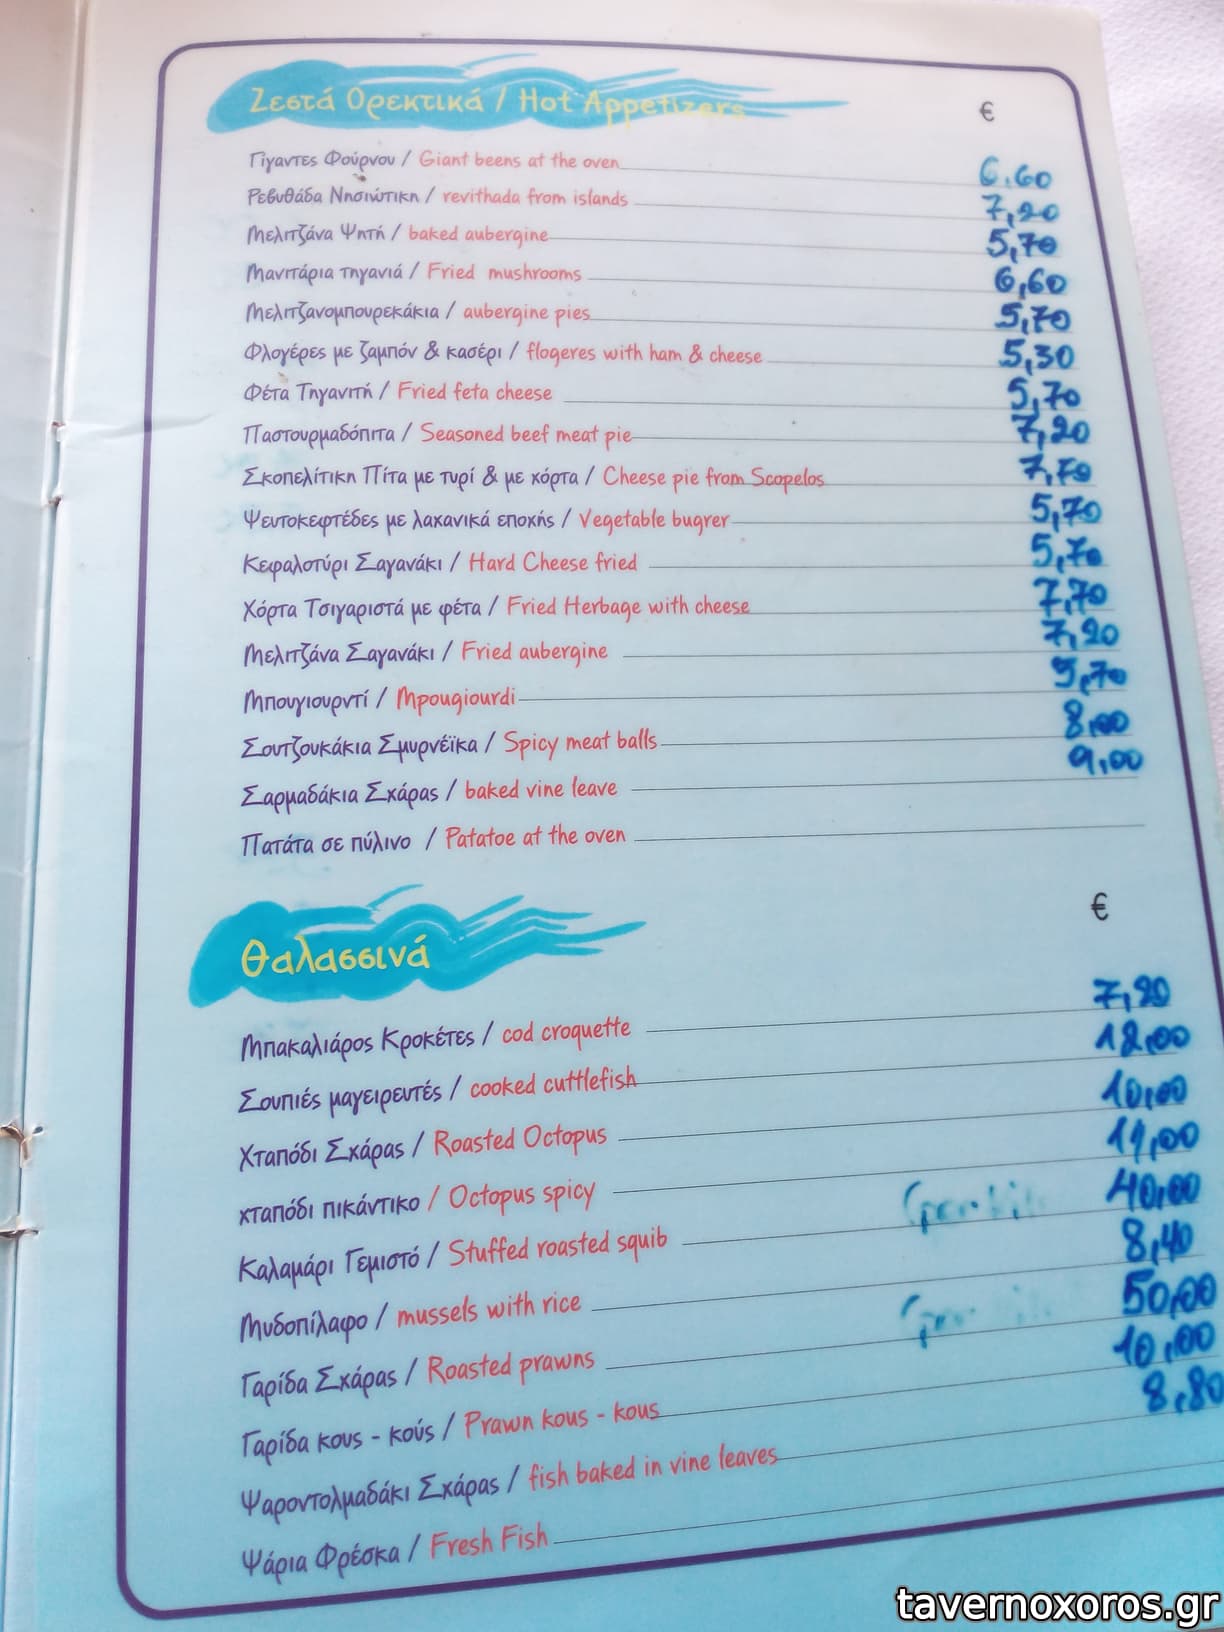 Ζεστά Ορεκτικά / Hot Appetizers €
Γίγαντες Φούρνου / Giant beens at the oven 6,60
Ρεβυθάδα Νησιώτικη / revithada from islands 7,20
Μελιτζάνα Ψητή / baked aubergine 5,70
Μανιτάρια τηγανιά / Fried mushrooms 6,60
Μελιτζανομπουρεκάκια / aubergine pies 5,70
Φλογέρες με ζαμπόν & κασέρι / flogeres with ham & cheese 5,30
Φέτα Τηγανιτή / Fried feta cheese 5,70
Παστουρμαδόπιτα / Seasoned beef meat pie 7,20
Σκοπελίτικη Πίτα με τυρί & με χόρτα / Cheese pie from Scopelos 7,70
Ψευτοκεφτέδες με λαχανικά εποχής / Vegetable bugrer 5,70
Κεφαλοτύρι Σαγανάκι / Hard Cheese fried 5,70
Χόρτα Τσιγαριστά με φέτα / Fried Herbage with cheese 7,70
Μελιτζάνα Σαγανάκι / Fried aubergine 7,20
Μπουγιουρντί / Mpougiourdi 5,70
Σουτζουκάκια Σμυρνέϊκα / Spicy meat balls 8,00
Σαρμαδάκια Σχάρας / baked vine leave 9,00
Πατάτα σε πύλινο / Patatoe at the oven
Θαλασσινά €
Μπακαλιάρος Κροκέτες / cod croquette 7,20
Σουπιές μαγειρευτές / cooked cuttlefish 12,00
Χταπόδι Σχάρας / Roasted Octopus 10,00
χταπόδι πικάντικο / Octopus spicy 11,00
Καλαμάρι Γεμιστό / Stuffed roasted squib 40,00
Μυδοπίλαφο / mussels with rice 8,40
Γαρίδα Σχάρας / Roasted prawns 50,00
Γαρίδα κους - κούς / Prawn kous - kous 10,00
Ψαροντολμαδάκι Σχάρας / fish baked in vine leaves 8,80
Ψάρια Φρέσκα / Fresh Fish
tavernoxoros.gr